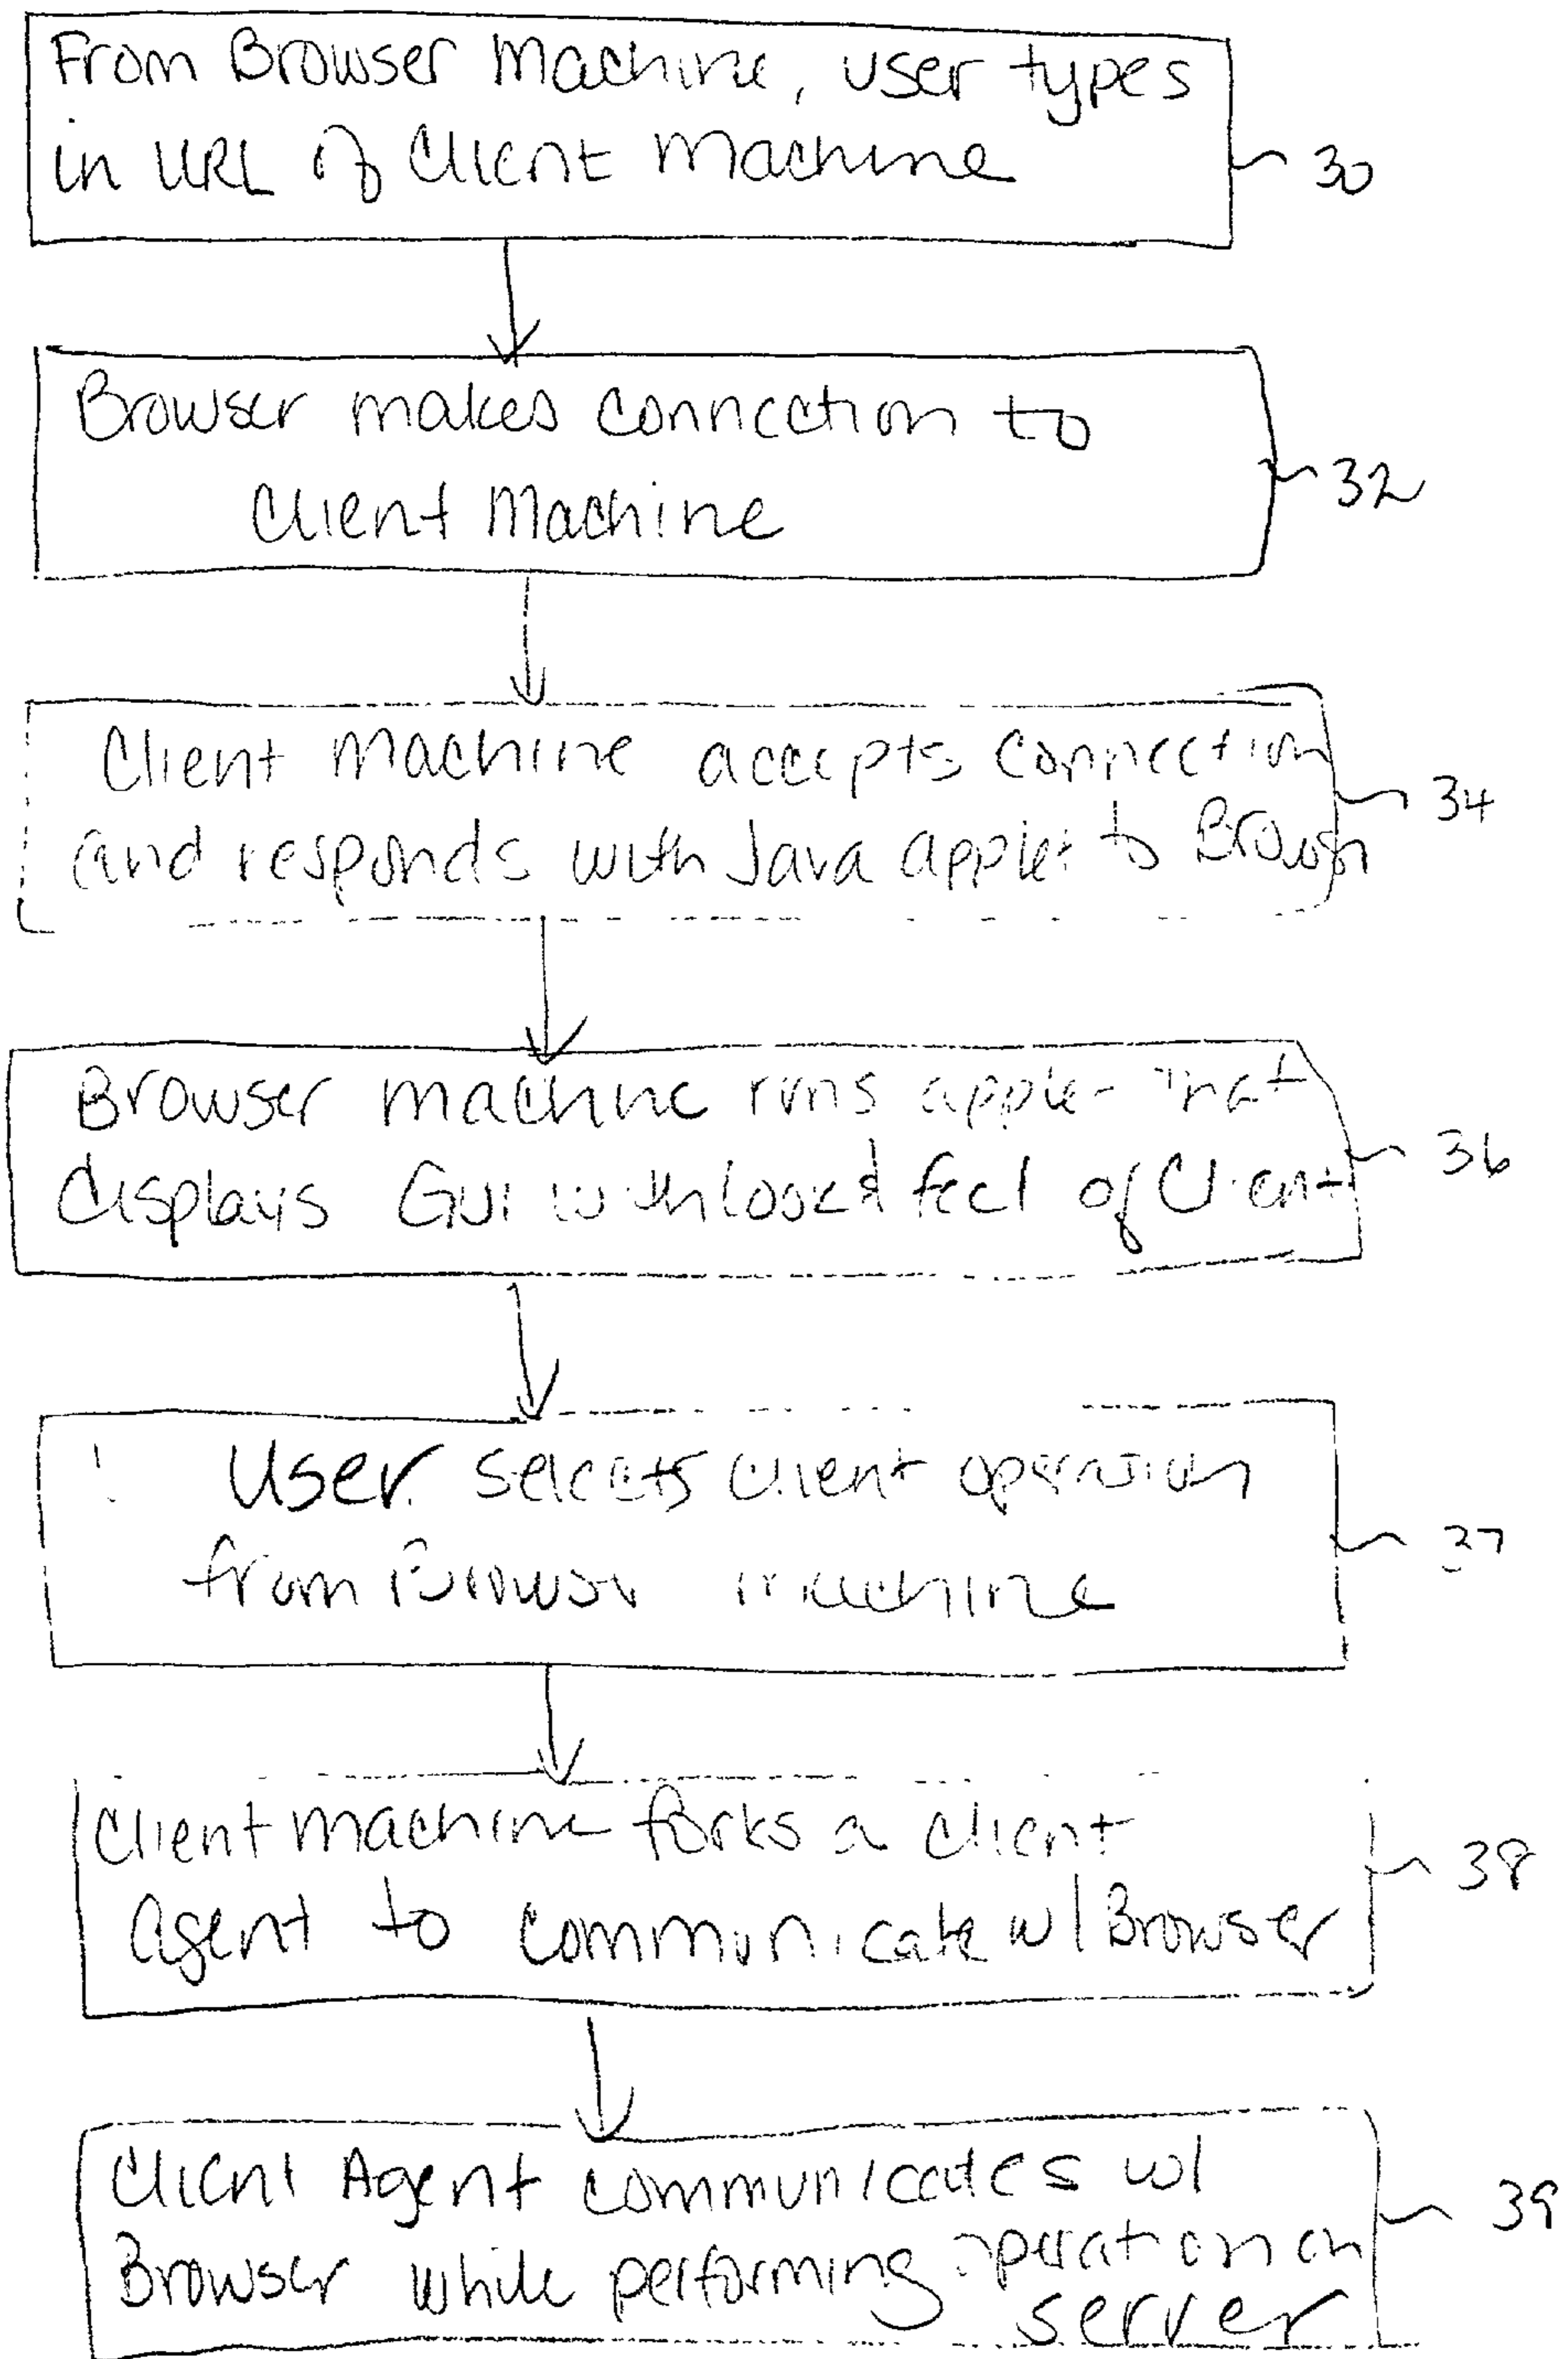 From Browser Machine, user types
in URL of Client Machine
30
Browser makes connection to
Client Machine
32
Client Machine accepts connection
and responds with Java applet to Browser
34
Browser machine runs applet that
displays GUI with look & feel of Client
36
User selects client operation
from Browser machine
37
Client machine forks a client
Agent to communicate w/ Browser
38
Client Agent communicates w/
Browser while performing operation on
server
39